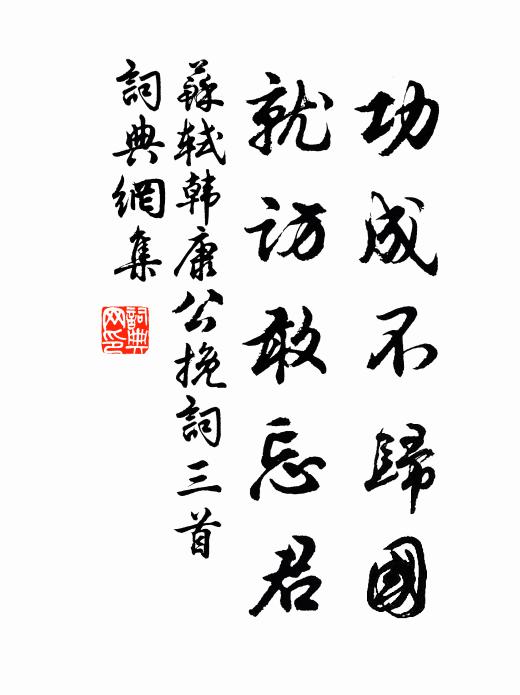 功成不歸國
就訪敢忘君
蘇軾韓康公挽詞三首
詞典網集
詞典网印